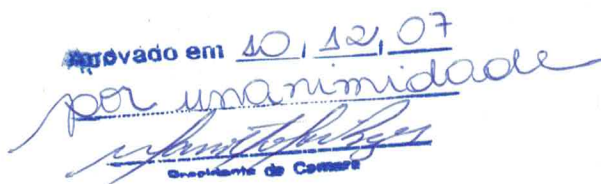 Aprovado em 10, 12, 07
por unanimidade
Presidente da Camara